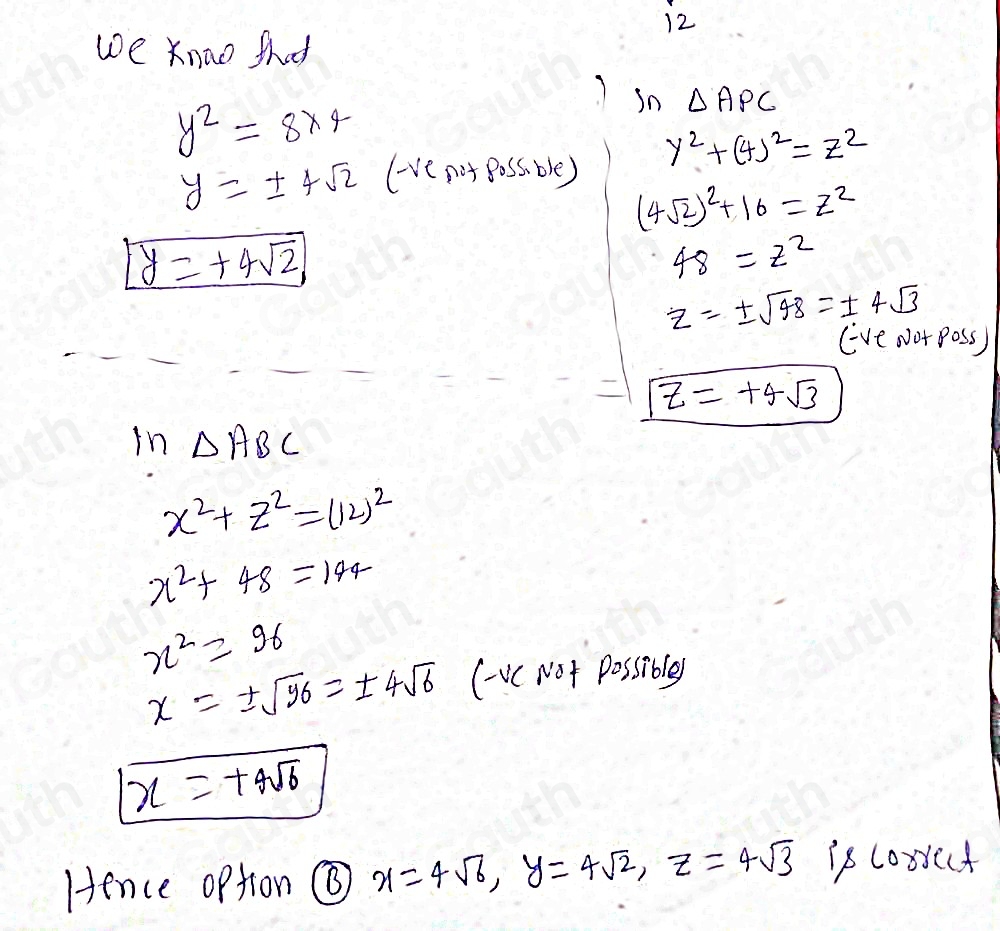 12
We know that
y² = 8×4
y = ± 4√2 (-ve not possible)
y = +4√2
In △APC
y² + (4)² = z²
(4√2)² + 16 = z²
48 = z²
z = ±√48 = ± 4√3
(-ve Not Poss)
z = +4√3
In △ABC
x² + z² = (12)²
x² + 48 = 144
x² = 96
x = ±√96 = ± 4√6 (-ve Not Possible)
x = +4√6
Hence option Ⓑ x = 4√6, y = 4√2, z = 4√3 is correct
Gauth